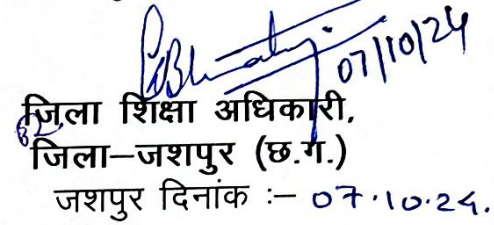 07/10/24
जिला शिक्षा अधिकारी,
जिला–जशपुर (छ.ग.)
जशपुर दिनांक :– 07.10.24.